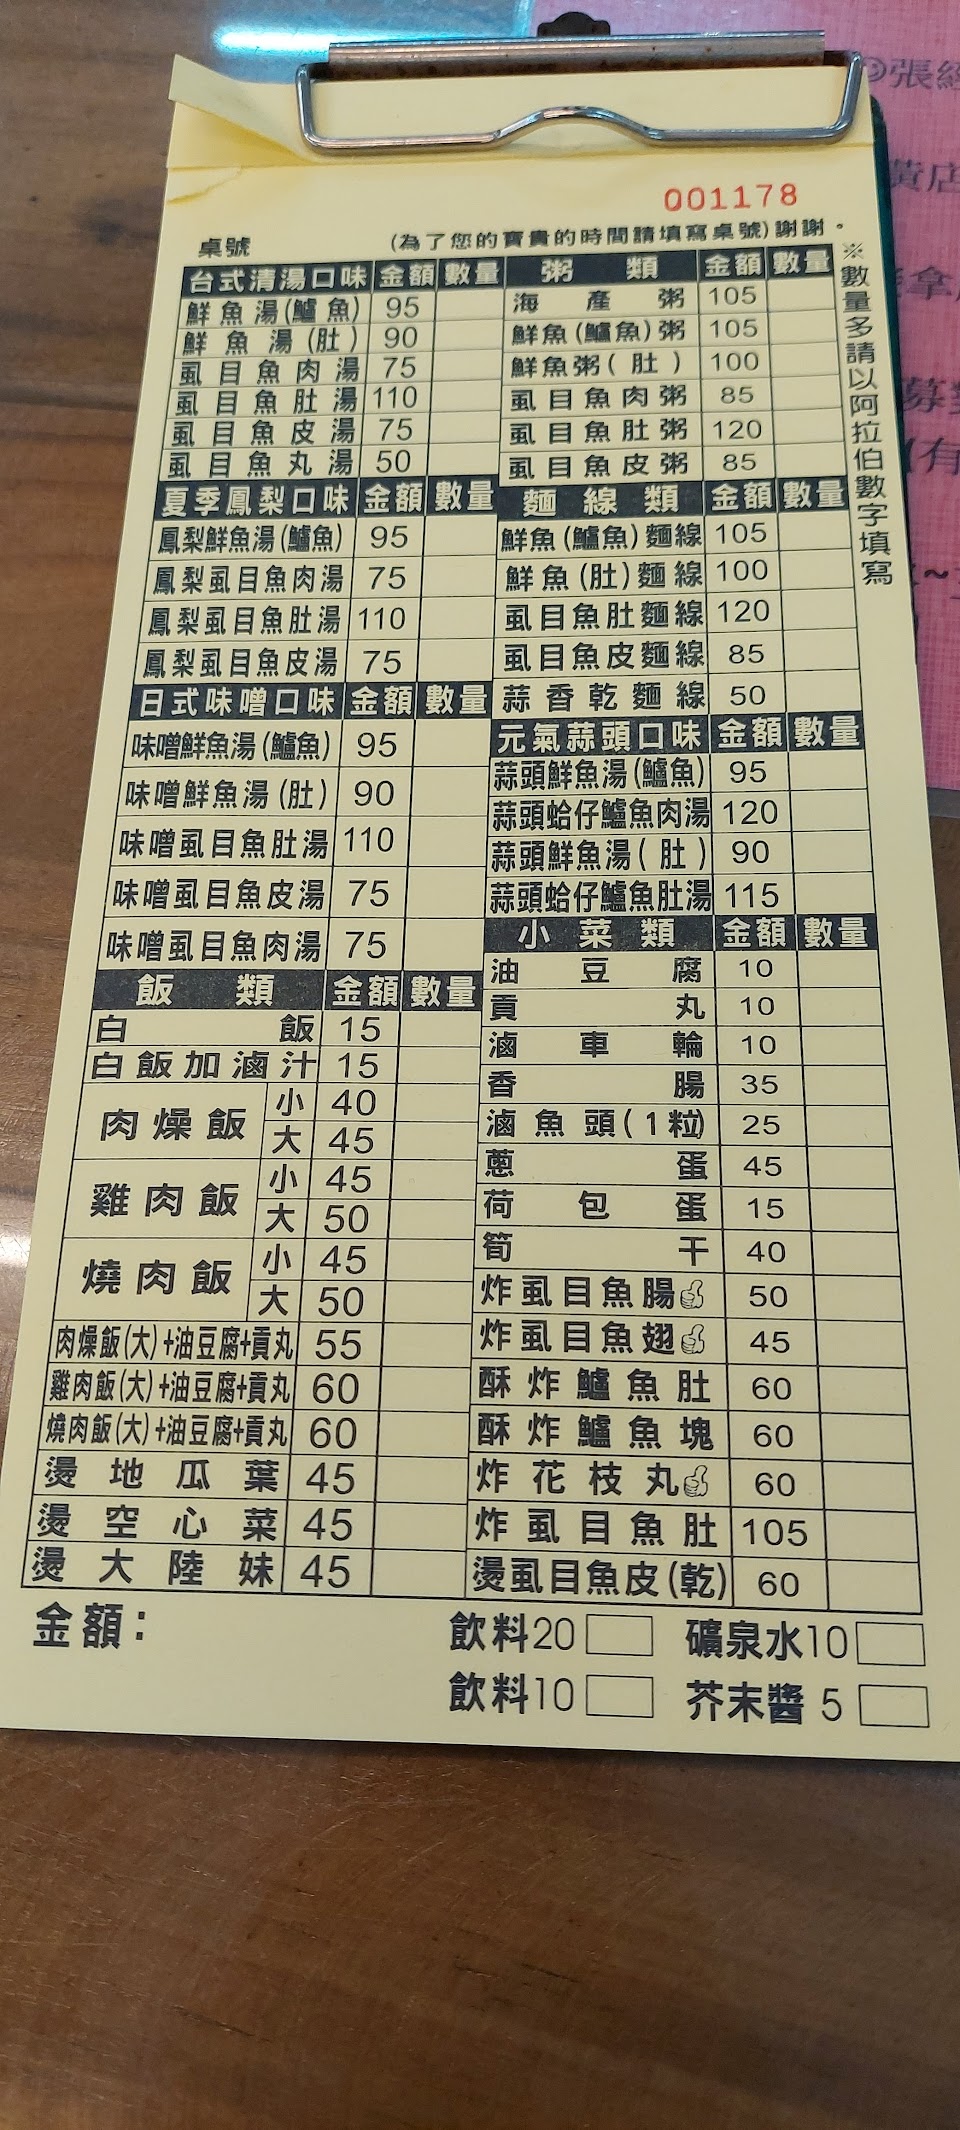 001178
桌號 (為了您的寶貴的時間請填寫桌號)謝謝。
※數量多請以阿拉伯數字填寫
台式清湯口味 金額 數量
鮮魚湯(鱸魚) 95
鮮魚湯(肚) 90
虱目魚肉湯 75
虱目魚肚湯 110
虱目魚皮湯 75
虱目魚丸湯 50
夏季鳳梨口味 金額 數量
鳳梨鮮魚湯(鱸魚) 95
鳳梨虱目魚肉湯 75
鳳梨虱目魚肚湯 110
鳳梨虱目魚皮湯 75
日式味噌口味 金額 數量
味噌鮮魚湯(鱸魚) 95
味噌鮮魚湯(肚) 90
味噌虱目魚肚湯 110
味噌虱目魚皮湯 75
味噌虱目魚肉湯 75
飯類 金額 數量
白飯 15
白飯加滷汁 15
肉燥飯 小 40
大 45
雞肉飯 小 45
大 50
燒肉飯 小 45
大 50
肉燥飯(大)+油豆腐+貢丸 55
雞肉飯(大)+油豆腐+貢丸 60
燒肉飯(大)+油豆腐+貢丸 60
燙地瓜葉 45
燙空心菜 45
燙大陸妹 45
粥類 金額 數量
海產粥 105
鮮魚(鱸魚)粥 105
鮮魚粥(肚) 100
虱目魚肉粥 85
虱目魚肚粥 120
虱目魚皮粥 85
麵線類 金額 數量
鮮魚(鱸魚)麵線 105
鮮魚(肚)麵線 100
虱目魚肚麵線 120
虱目魚皮麵線 85
蒜香乾麵線 50
元氣蒜頭口味 金額 數量
蒜頭鮮魚湯(鱸魚) 95
蒜頭蛤仔鱸魚肉湯 120
蒜頭鮮魚湯(肚) 90
蒜頭蛤仔鱸魚肚湯 115
小菜類 金額 數量
油豆腐 10
貢丸 10
滷車輪 10
香腸 35
滷魚頭(1粒) 25
蔥蛋 45
荷包蛋 15
筍干 40
炸虱目魚腸 50
炸虱目魚翅 45
酥炸鱸魚肚 60
酥炸鱸魚塊 60
炸花枝丸 60
炸虱目魚肚 105
燙虱目魚皮(乾) 60
金額：
飲料20 礦泉水10
飲料10 芥末醬 5
張
店
拿
(有